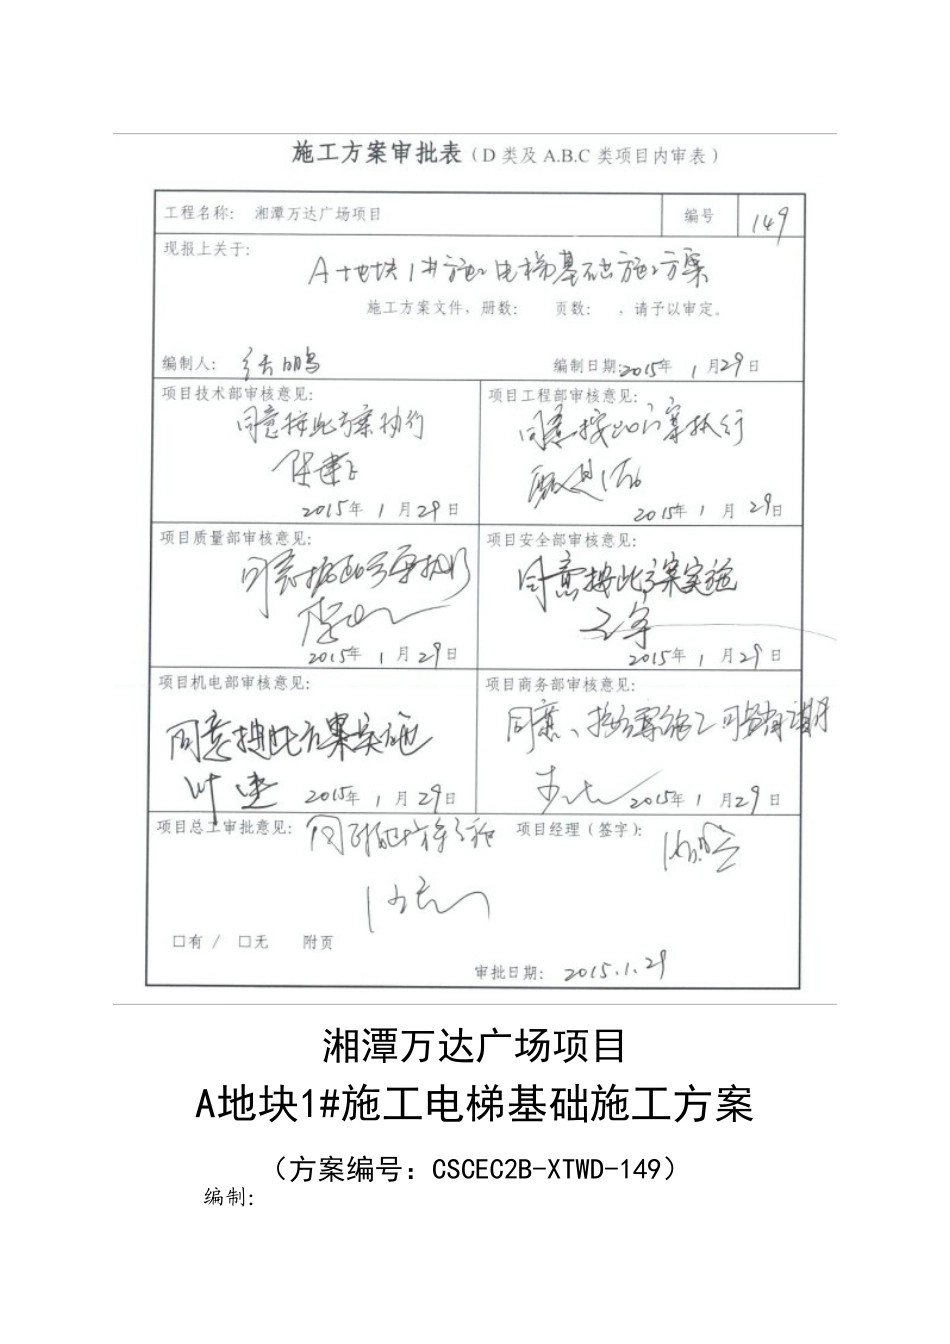 施工方案审批表（D 类及 A.B.C 类项目内审表）
工程名称： 湘潭万达广场项目 编号 149
现报上关于：
A地块1#施工电梯基础施工方案
施工方案文件，册数： 页数： ，请予以审定。
编制人： 张鹏 编制日期：2015年 1月29日
项目技术部审核意见： 项目工程部审核意见：
同意按此方案执行 同意按此方案执行
2015年 1月29日 2015年 1月 29日
项目质量部审核意见： 项目安全部审核意见：
同意按此方案执行 同意按此方案实施
2015年 1月29日 2015年 1月29日
项目机电部审核意见： 项目商务部审核意见：
同意按此方案实施 同意、按方案施工
2015年 1月29日 2015年 1月29日
项目总工审批意见： 项目经理（签字）：
□有 / □无 附页
审批日期： 2015.1.29
湘潭万达广场项目
A地块1#施工电梯基础施工方案
（方案编号：CSCEC2B-XTWD-149）
编制：